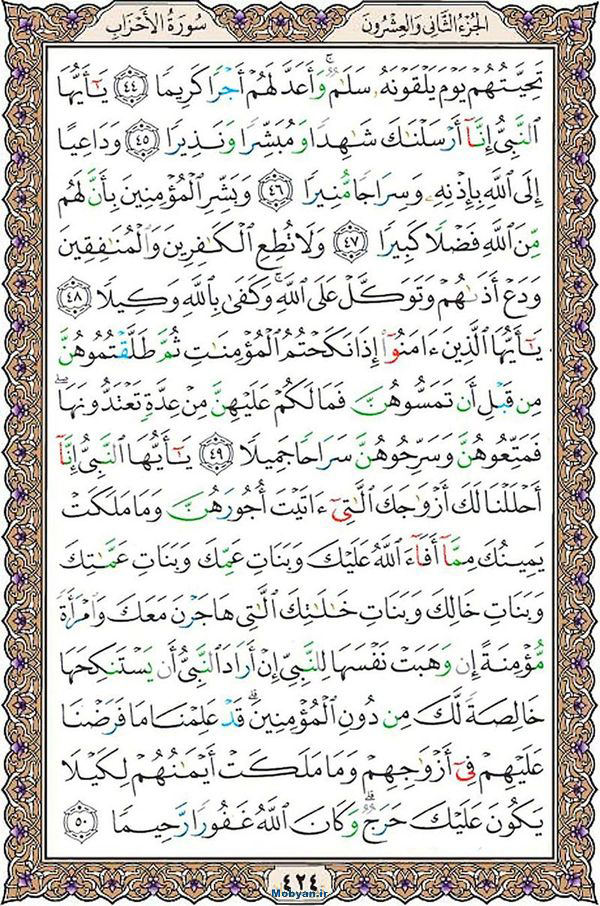 الجُزءُ الثَّانِي وَالعِشرُونَ
سُورَةُ الأَحزَابِ
تَحِيَّتُهُمْ يَوْمَ يَلْقَوْنَهُۥ سَلَٰمٌۚ وَأَعَدَّ لَهُمْ أَجْرًا كَرِيمًا ٤٤ يَٰٓأَيُّهَا
ٱلنَّبِىُّ إِنَّآ أَرْسَلْنَٰكَ شَٰهِدًا وَمُبَشِّرًا وَنَذِيرًا ٤٥ وَدَاعِيًا
إِلَى ٱللَّهِ بِإِذْنِهِۦ وَسِرَاجًا مُّنِيرًا ٤٦ وَبَشِّرِ ٱلْمُؤْمِنِينَ بِأَنَّ لَهُم
مِّنَ ٱللَّهِ فَضْلًا كَبِيرًا ٤٧ وَلَا تُطِعِ ٱلْكَٰفِرِينَ وَٱلْمُنَٰفِقِينَ
وَدَعْ أَذَىٰهُمْ وَتَوَكَّلْ عَلَى ٱللَّهِۚ وَكَفَىٰ بِٱللَّهِ وَكِيلًا ٤٨
يَٰٓأَيُّهَا ٱلَّذِينَ ءَامَنُوٓا۟ إِذَا نَكَحْتُمُ ٱلْمُؤْمِنَٰتِ ثُمَّ طَلَّقْتُمُوهُنَّ
مِن قَبْلِ أَن تَمَسُّوهُنَّ فَمَا لَكُمْ عَلَيْهِنَّ مِنْ عِدَّةٍ تَعْتَدُّونَهَاۖ
فَمَتِّعُوهُنَّ وَسَرِّحُوهُنَّ سَرَاحًا جَمِيلًا ٤٩ يَٰٓأَيُّهَا ٱلنَّبِىُّ إِنَّآ
أَحْلَلْنَا لَكَ أَزْوَٰجَكَ ٱلَّٰتِىٓ ءَاتَيْتَ أُجُورَهُنَّ وَمَا مَلَكَتْ
يَمِينُكَ مِمَّآ أَفَآءَ ٱللَّهُ عَلَيْكَ وَبَنَاتِ عَمِّكَ وَبَنَاتِ عَمَّٰتِكَ
وَبَنَاتِ خَالِكَ وَبَنَاتِ خَٰلَٰتِكَ ٱلَّٰتِى هَاجَرْنَ مَعَكَ وَٱمْرَأَةً
مُّؤْمِنَةً إِن وَهَبَتْ نَفْسَهَا لِلنَّبِىِّ إِنْ أَرَادَ ٱلنَّبِىُّ أَن يَسْتَنكِحَهَا
خَالِصَةً لَّكَ مِن دُونِ ٱلْمُؤْمِنِينَۗ قَدْ عَلِمْنَا مَا فَرَضْنَا
عَلَيْهِمْ فِىٓ أَزْوَٰجِهِمْ وَمَا مَلَكَتْ أَيْمَٰنُهُمْ لِكَيْلَا
يَكُونَ عَلَيْكَ حَرَجٌۗ وَكَانَ ٱللَّهُ غَفُورًا رَّحِيمًا ٥٠
٤٢٤
Mobyan.ir